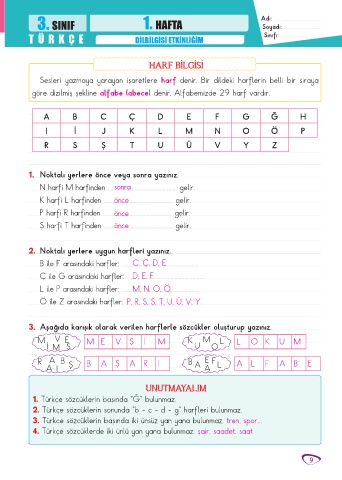 3. SINIF
TÜRKÇE
1. HAFTA
DİLBİLGİSİ ETKİNLİĞİM
Adı:
Soyadı:
Sınıfı:
HARF BİLGİSİ
Sesleri yazmaya yarayan işaretlere harf denir. Bir dildeki harflerin belli bir sıraya
göre dizilmiş şekline alfabe (abece) denir. Alfabemizde 29 harf vardır.
A B C Ç D E F G Ğ H
I İ J K L M N O Ö P
R S Ş T U Ü V Y Z
1. Noktalı yerlere önce veya sonra yazınız.
N harfi M harfinden sonra gelir.
K harfi L harfinden önce gelir.
P harfi R harfinden önce gelir.
S harfi T harfinden önce gelir.
2. Noktalı yerlere uygun harfleri yazınız.
B ile F arasındaki harfler: C, Ç, D, E
Ç ile G arasındaki harfler: D, E, F
L ile P arasındaki harfler: M, N, O, Ö
Ö ile Z arasındaki harfler: P, R, S, Ş, T, U, Ü, V, Y
3. Aşağıda karışık olarak verilen harflerle sözcükler oluşturup yazınız.
M V E İ M S M E V S İ M
K M L U O L O K U M
R A B Ş A I B A Ş A R I
B E F A A L A L F A B E
UNUTMAYALIM
1. Türkçe sözcüklerin başında "Ğ" bulunmaz.
2. Türkçe sözcüklerin sonunda "b - c - d - g" harfleri bulunmaz.
3. Türkçe sözcüklerin başında iki ünsüz yan yana bulunmaz. tren, spor...
4. Türkçe sözcüklerde iki ünlü yan yana bulunmaz. şair, saadet, saat
9